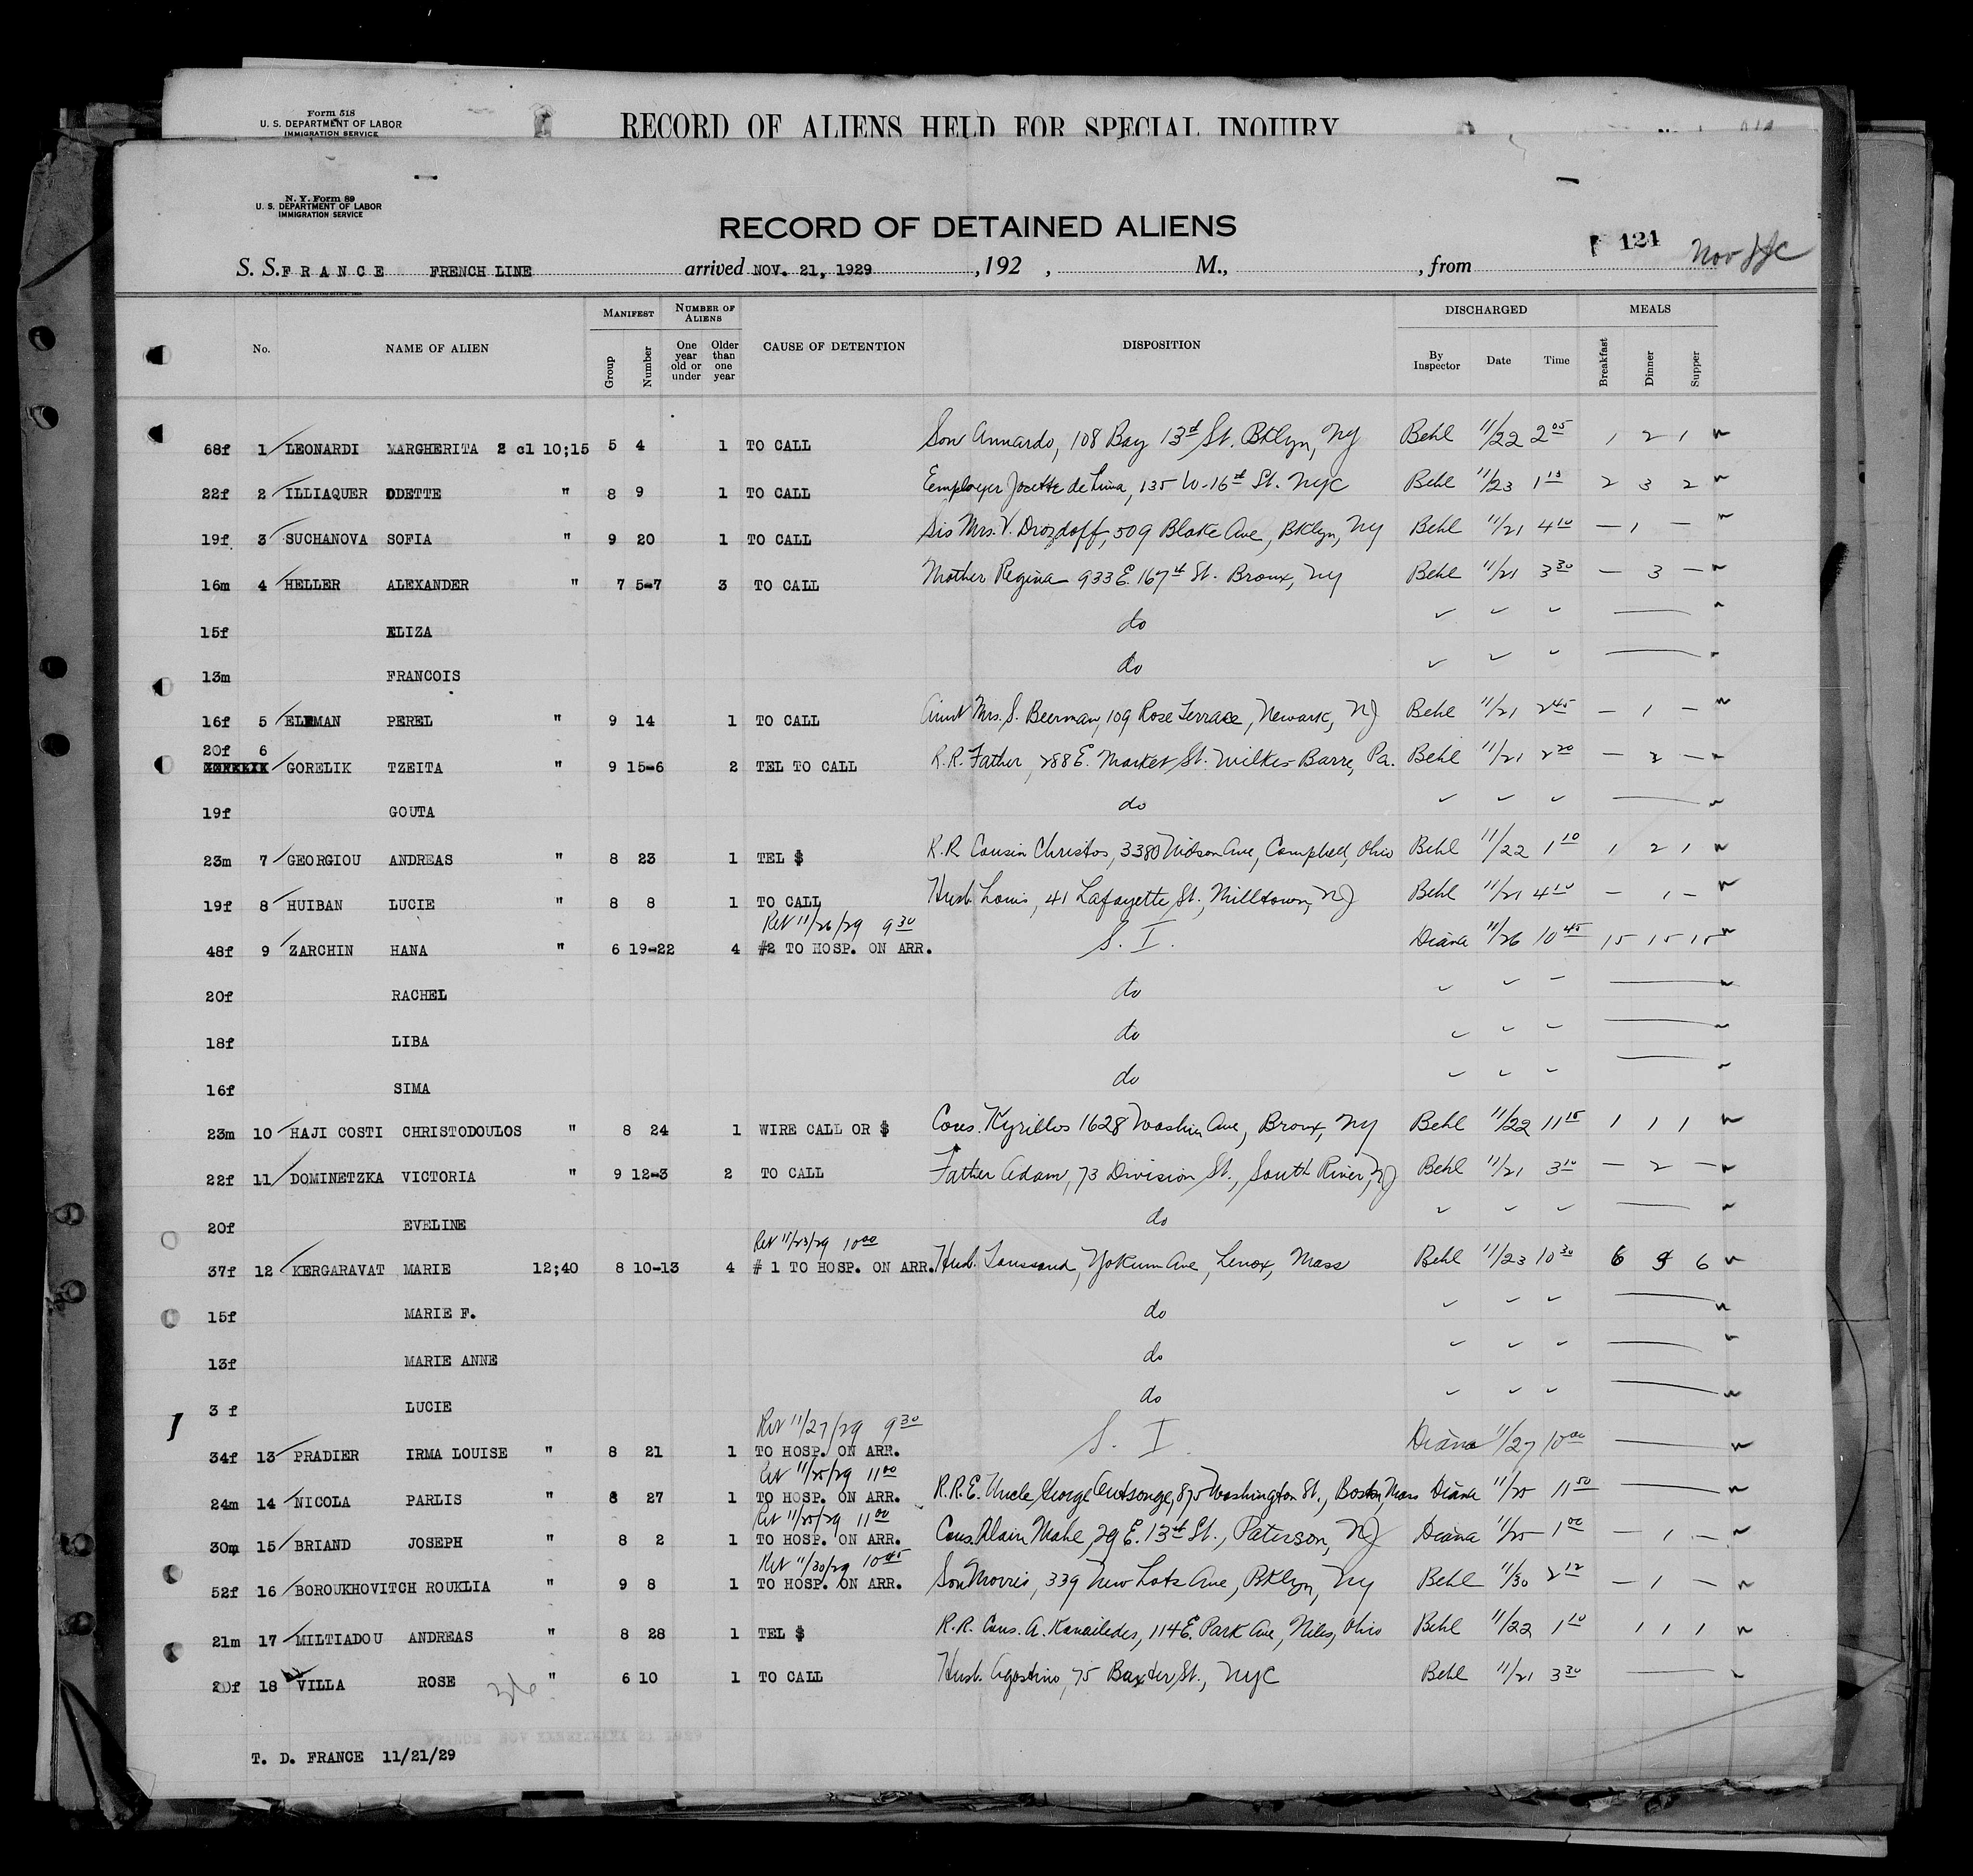 Form 518
U. S. DEPARTMENT OF LABOR
IMMIGRATION SERVICE
RECORD OF ALIENS HELD FOR SPECIAL INQUIRY
N. Y. Form 89
U. S. DEPARTMENT OF LABOR
IMMIGRATION SERVICE
RECORD OF DETAINED ALIENS
124
S. S. FRANCE FRENCH LINE arrived NOV. 21, 1929 , 192 , M., , from
No. NAME OF ALIEN MANIFEST Group Number NUMBER OF ALIENS One year old or under Older than one year CAUSE OF DETENTION DISPOSITION DISCHARGED By Inspector Date Time MEALS Breakfast Dinner Supper
68f 1 LEONARDI MARGHERITA 2 cl 10;15 5 4 1 TO CALL Son Annardo, 108 Bay 13th St. Bklyn, NY Behl 11/22 2 05 1 2 1
22f 2 ILLIAQUER ODETTE " 8 9 1 TO CALL Employer Josette de Lima, 135 W-16th St. NYC Behl 11/23 1 15 2 3 2
19f 3 SUCHANOVA SOFIA " 9 20 1 TO CALL Sis Mrs. V. Drozdoff, 509 Blake Ave, Bklyn, NY Behl 11/21 4 10 — 1 —
16m 4 HELLER ALEXANDER " 7 5-7 3 TO CALL Mother Regina 933 E. 167th St. Bronx, NY Behl 11/21 3 30 — 3 —
15f ELIZA do
13m FRANCOIS do
16f 5 ELMAN PEREL " 9 14 1 TO CALL Aunt Mrs. S. Beerman, 109 Rose Terrace, Newark, NJ Behl 11/21 2 45 — 1 —
20f 6
GORELIK TZEITA " 9 15-6 2 TEL TO CALL R.R. Father, 288 E. Market St. Wilkes-Barre, Pa. Behl 11/21 2 20 — 2 —
19f GOUTA do
23m 7 GEORGIOU ANDREAS " 8 23 1 TEL $ R.R Cousin Christos, 3380 Wilson Ave, Campbell, Ohio Behl 11/22 1 10 1 2 1
19f 8 HUIBAN LUCIE " 8 8 1 TO CALL Husb. Louis, 41 Lafayette St., Milltown, NJ Behl 11/21 4 10 — 1 —
Ret 11/26/29 9 30
48f 9 ZARCHIN HANA " 6 19-22 4 #2 TO HOSP. ON ARR. S. I. Diana 11/26 10 45 15 15 15
20f RACHEL do
18f LIBA do
16f SIMA do
23m 10 HAJI COSTI CHRISTODOULOS " 8 24 1 WIRE CALL OR $ Cous. Kyrillos 1628 Washin Ave, Bronx, NY Behl 11/22 11 15 1 1 1
22f 11 DOMINETZKA VICTORIA " 9 12-3 2 TO CALL Father Adam, 73 Division St., South River, NJ Behl 11/21 3 10 — 2 —
20f EVELINE do
Ret 11/23/29 10 00
37f 12 KERGARAVAT MARIE 12;40 8 10-13 4 # 1 TO HOSP. ON ARR. Husb. Toussand, Yokum Ave, Lenox, Mass Behl 11/23 10 30 6 6
15f MARIE F. do
13f MARIE ANNE do
3 f LUCIE do
Ret 11/27/29 9 30
34f 13 PRADIER IRMA LOUISE " 8 21 1 TO HOSP. ON ARR. S. I. Diana 11/27 10 00
Ret 11/25/29 11 00
24m 14 NICOLA PARLIS " 8 27 1 TO HOSP. ON ARR. R.R.E. Uncle George 875 Washington St., Boston, Mass Diana 11/25 11 50
Ret 11/25/29 11 00
30m 15 BRIAND JOSEPH " 8 2 1 TO HOSP. ON ARR. Cous. Alain Mahe, 29 E. 13th St., Paterson, NJ Diana 11/25 1 00 — 1 —
Ret 11/30/29 10 45
52f 16 BOROUKHOVITCH ROUKLIA " 9 8 1 TO HOSP. ON ARR. Son Morris, 339 New Lots Ave, Bklyn, NY Behl 11/30 2 12 — 1 —
21m 17 MILTIADOU ANDREAS " 8 28 1 TEL $ R.R. Cous. A. Kanailedes, 114 E. Park Ave, Niles, Ohio Behl 11/22 1 10 1 1 1
20f 18 VILLA ROSE " 6 10 1 TO CALL Husb. Agostino, 75 Baxter St., NYC Behl 11/21 3 30
36
T. D. FRANCE 11/21/29